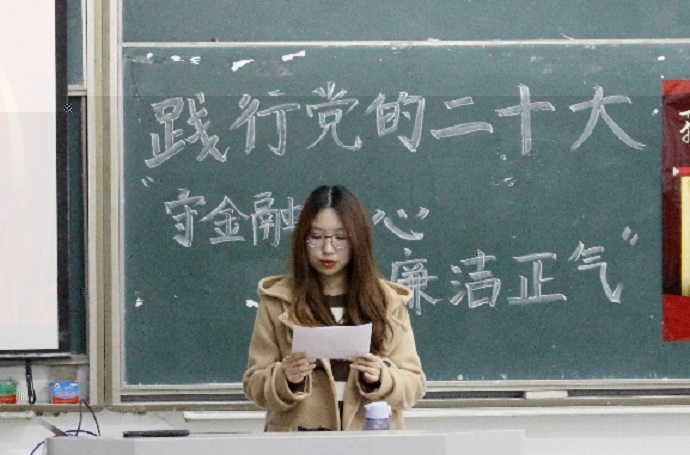 践行党的二十大
“守金融 心
廉洁正气”